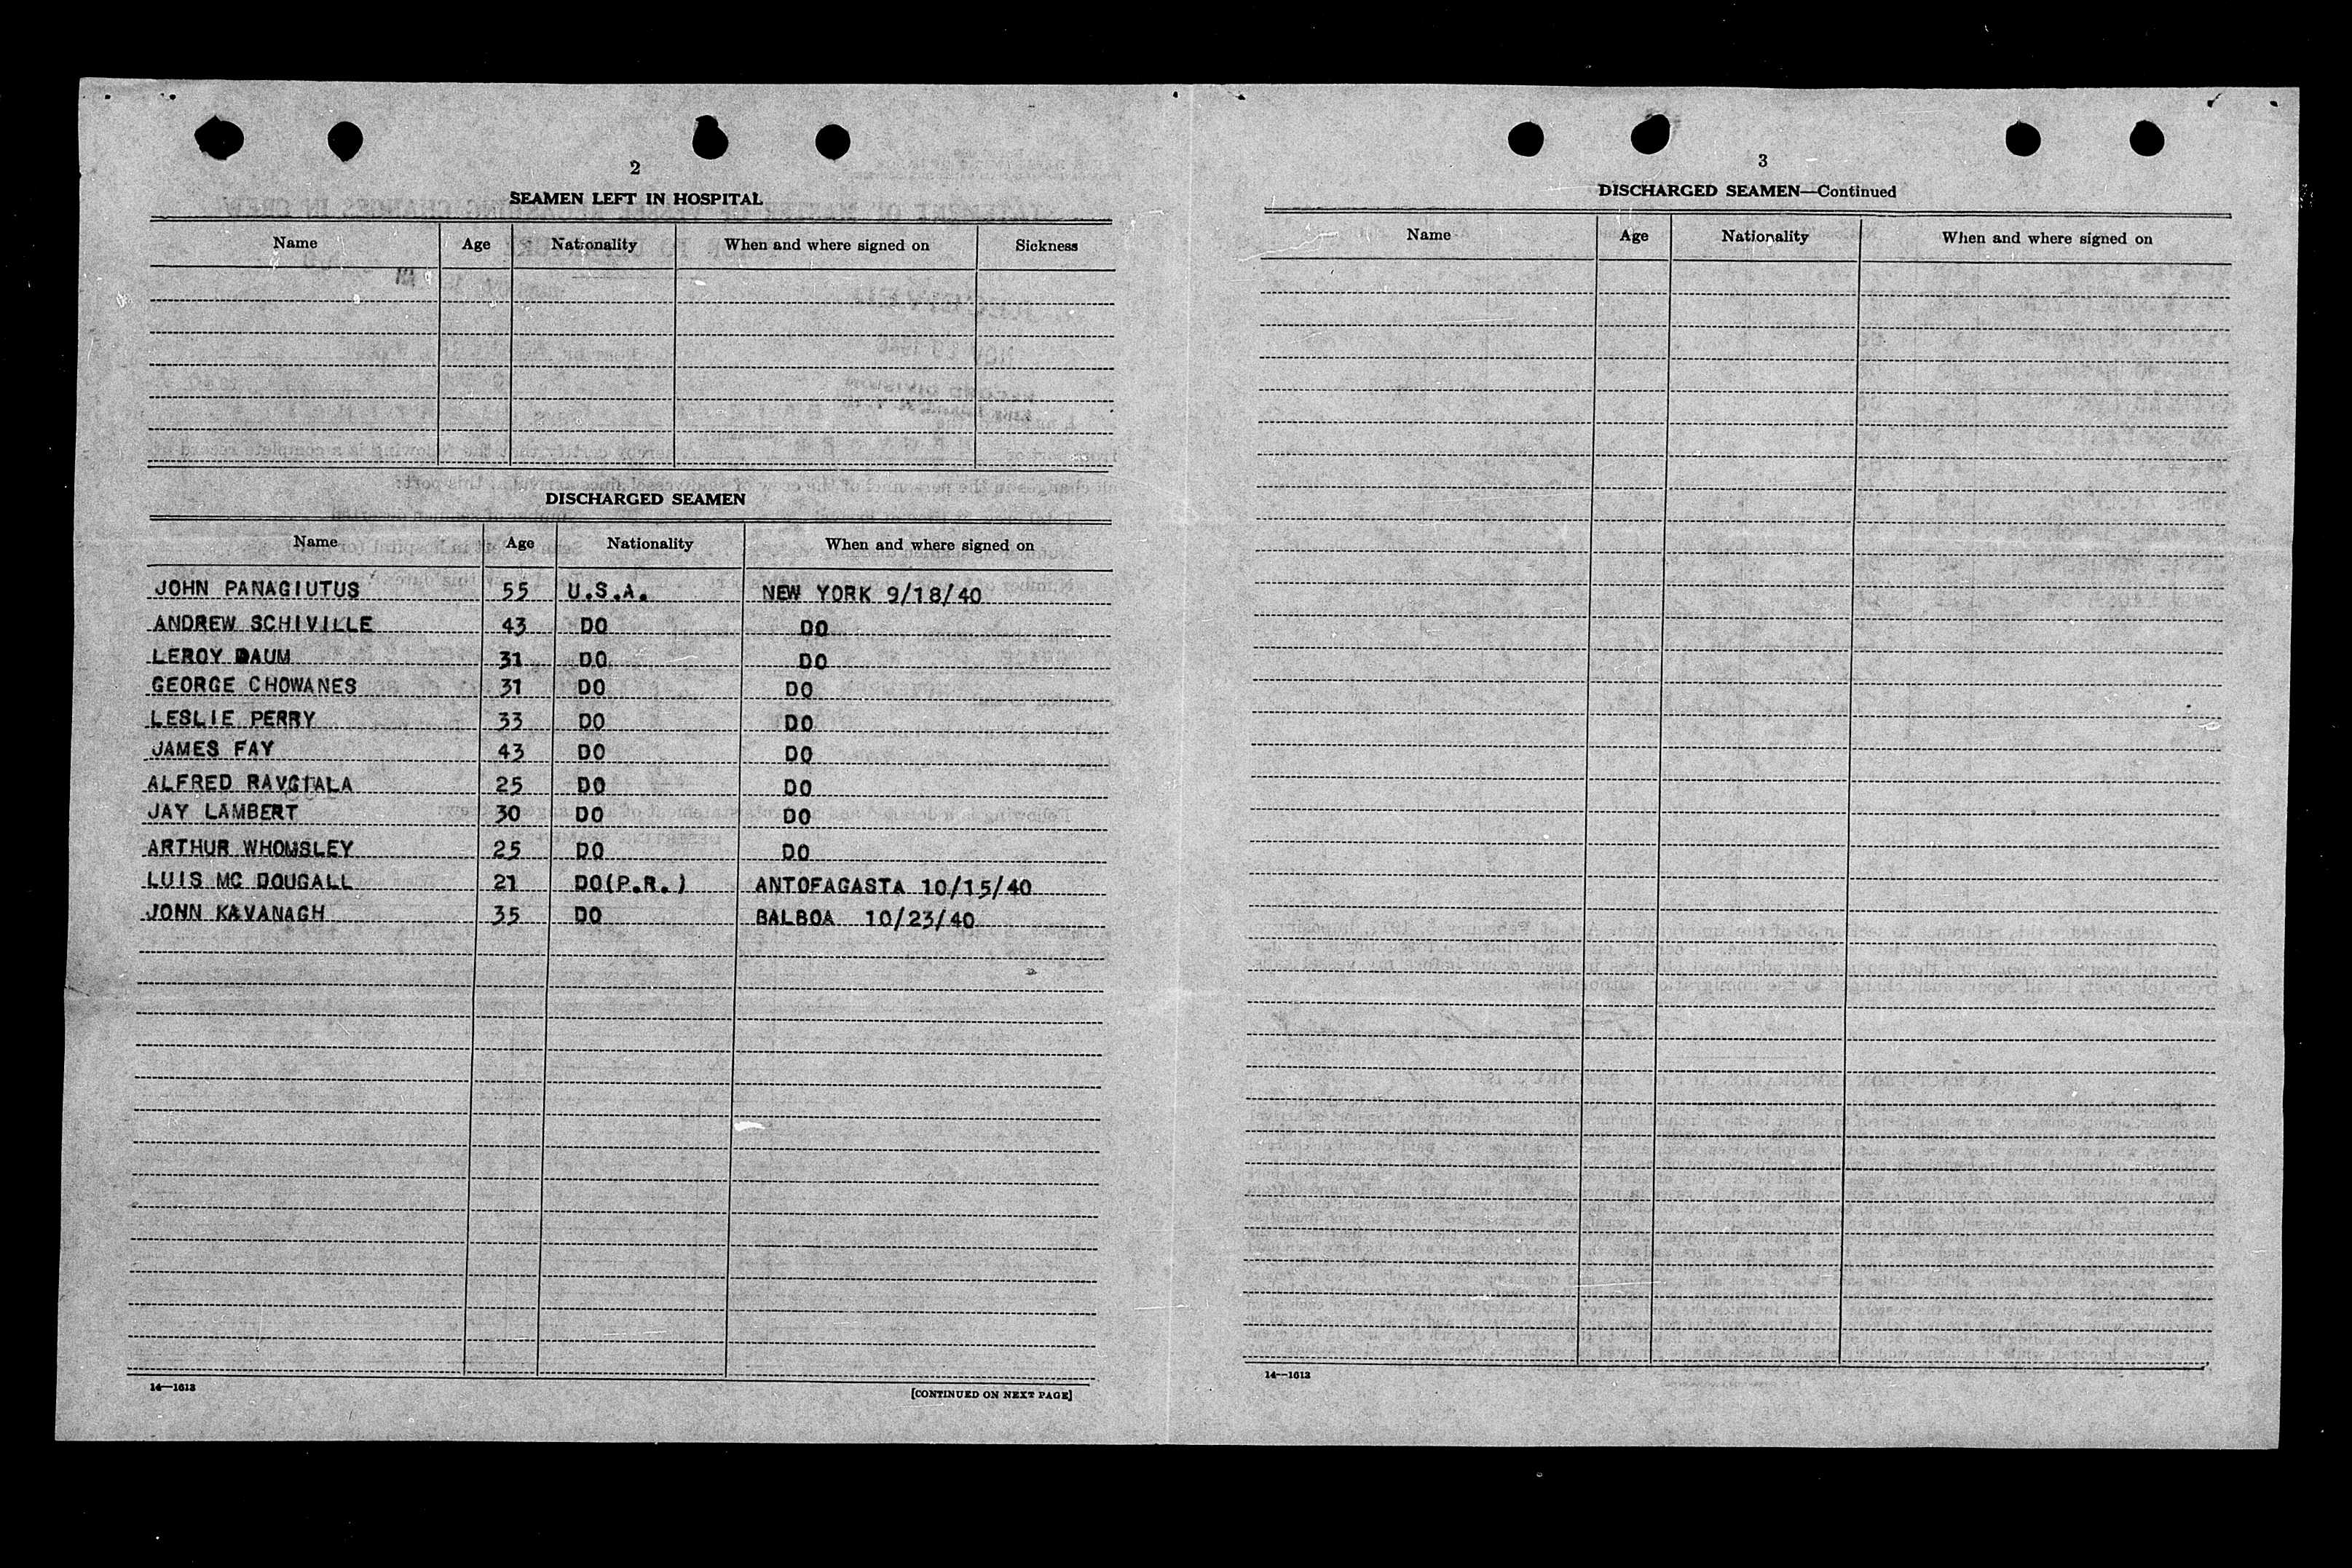 2
SEAMEN LEFT IN HOSPITAL
Name Age Nationality When and where signed on Sickness
DISCHARGED SEAMEN
Name Age Nationality When and where signed on
JOHN PANAGIUTUS 55 U.S.A. NEW YORK 9/18/40
ANDREW SCHIVILLE 43 DO DO
LEROY DAUM 31 DO DO
GEORGE CHOWANES 31 DO DO
LESLIE PERRY 33 DO DO
JAMES FAY 43 DO DO
ALFRED RAVGIALA 25 DO DO
JAY LAMBERT 30 DO DO
ARTHUR WHOMSLEY 25 DO DO
LUIS MC DOUGALL 21 DO(P.R.) ANTOFAGASTA 10/15/40
JOHN KAVANAGH 35 DO BALBOA 10/23/40
14—1613
[CONTINUED ON NEXT PAGE]
3
DISCHARGED SEAMEN—Continued
Name Age Nationality When and where signed on
14—1613